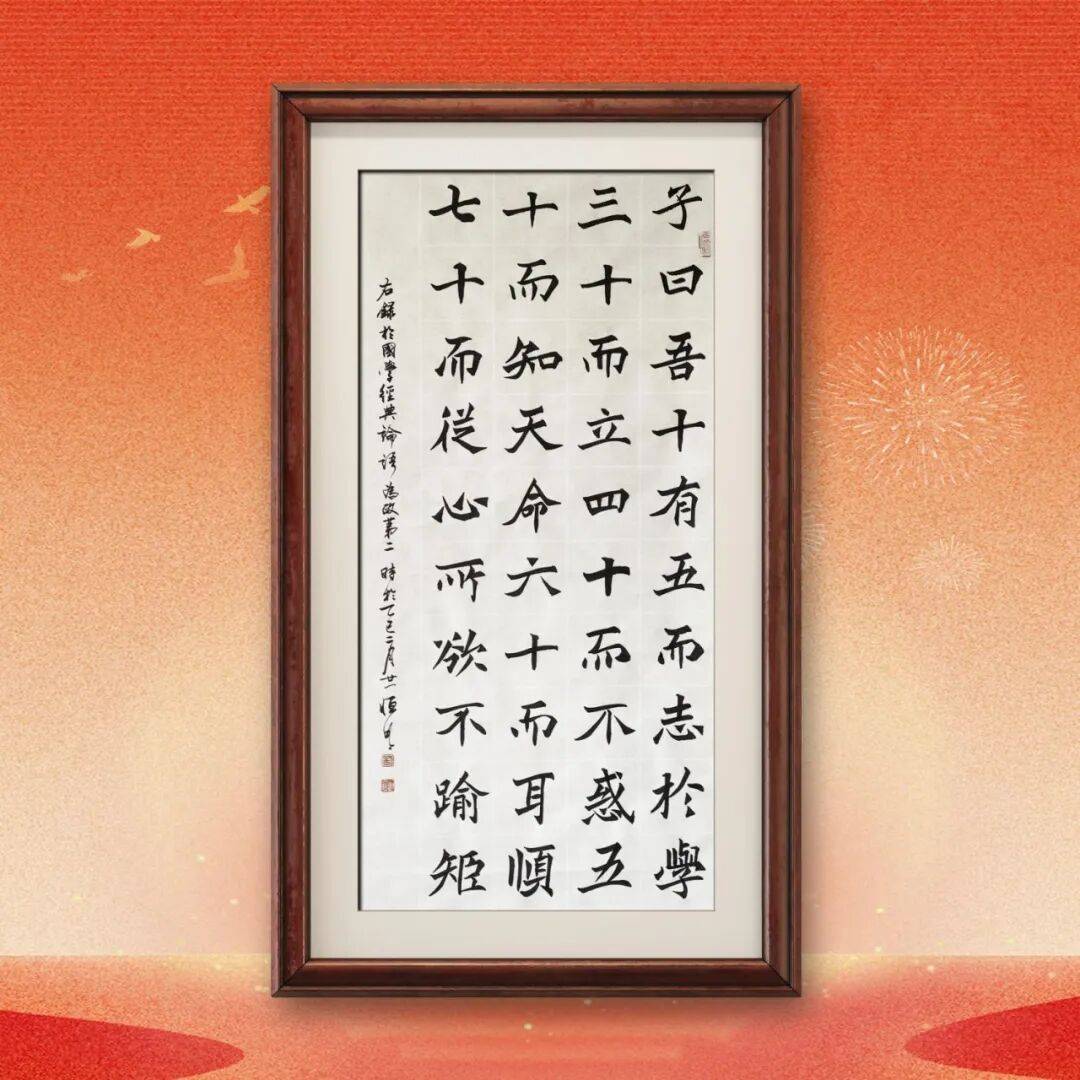 子曰吾十有五而志於學
三十而立四十而不惑五
十而知天命六十而耳順
七十而從心所欲不踰矩
右錄於國學經典論語為政第二 時於乙巳二月廿一恒